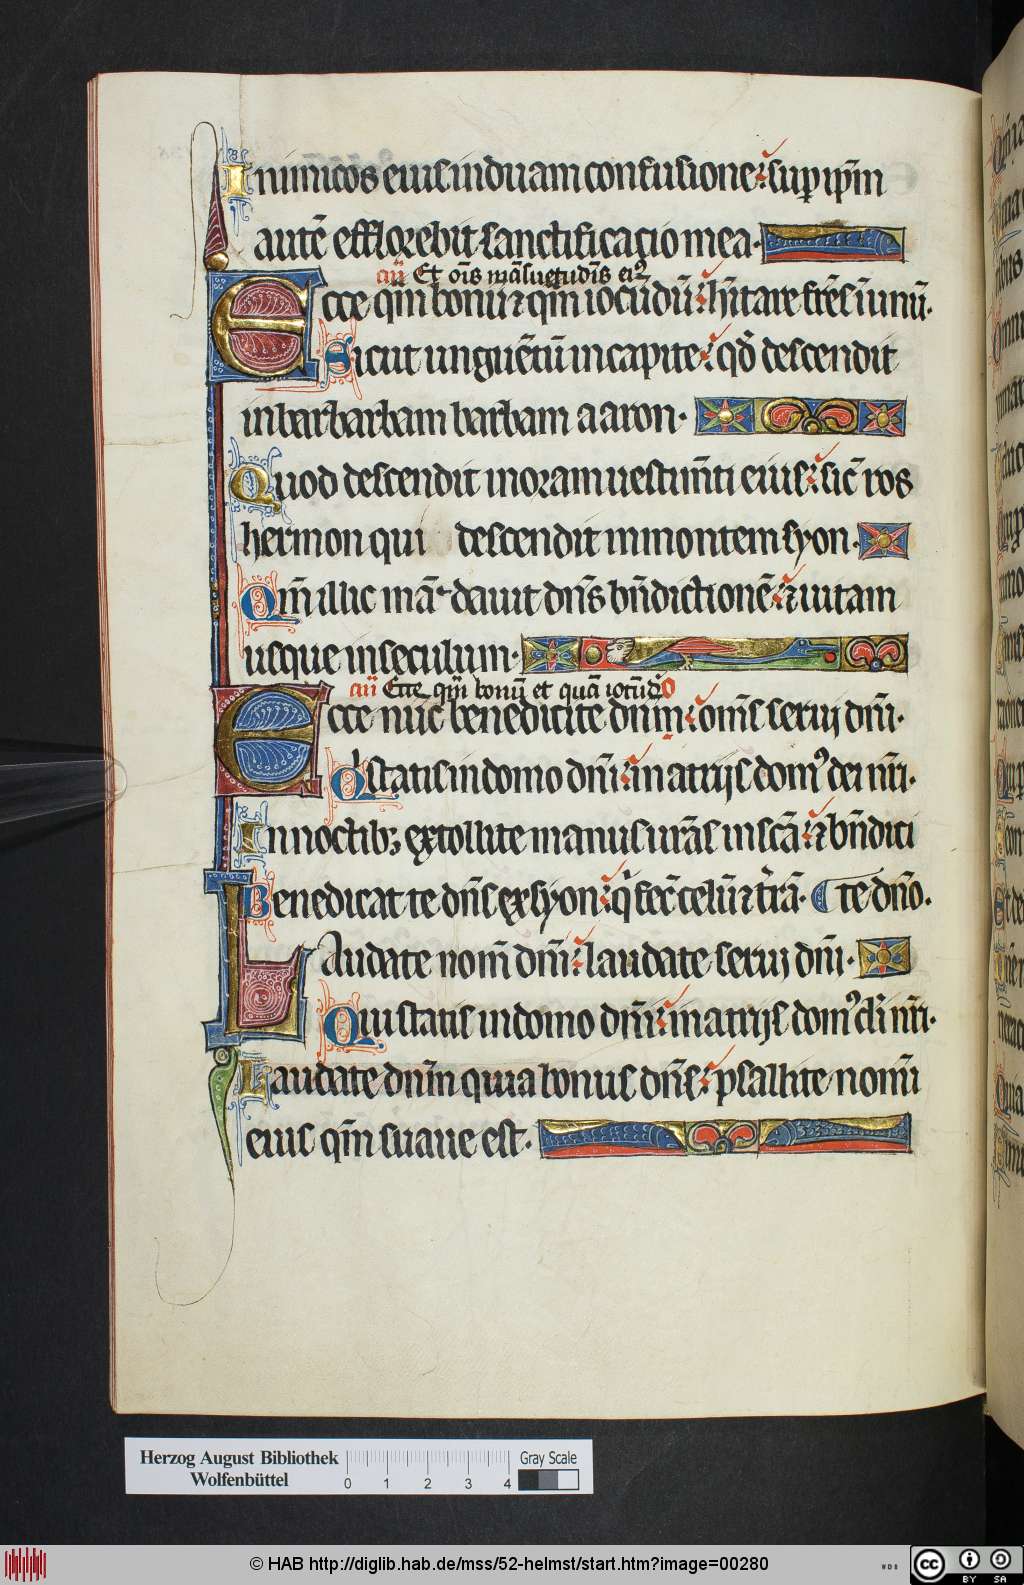 Inimicos eius induam confusione: sup ip̄m
autē efflorebit sanctificacio mea.
añ Et oīs māsuetudīs eiꝰ
Ecce qm̄ bonū ⁊ qm̄ iocūdū: hītare frēs ī unū.
Sicut unguētū in capite: qđ descendit
in barbarbam barbam aaron.
Quod descendit in oram uestim̄ti eius: sic̄ ros
hermon qui descendit in montem syon.
Qm̄ illic mā dauit dn̄s bn̄dictionē: ⁊ uitam
usque in seculum.
añ Ecce qm̄ bonū et quā iocūdū
Ecce nūc benedicite dnm̄: om̄s serui dn̄i.
Qui statis in domo dn̄i: in atriis domꝰ dei nr̄i.
In noctibꝫ extollite manus urās in scā: ⁊ bn̄dici
Benedicat te dn̄s ex syon: q̇ fec̄ celū ⁊ trā. te dn̄o.
Laudate nom̄ dn̄i: laudate serui dn̄i.
Qui statis in domo dn̄i: in atriis domꝰ di nr̄i.
Laudate dnm̄ quia bonus dn̄s: psallite nomī
eius qm̄ suaue est.
Herzog August Bibliothek
Wolfenbüttel
0 1 2 3 4
Gray Scale
© HAB http://diglib.hab.de/mss/52-helmst/start.htm?image=00280
WDB
cc BY SA